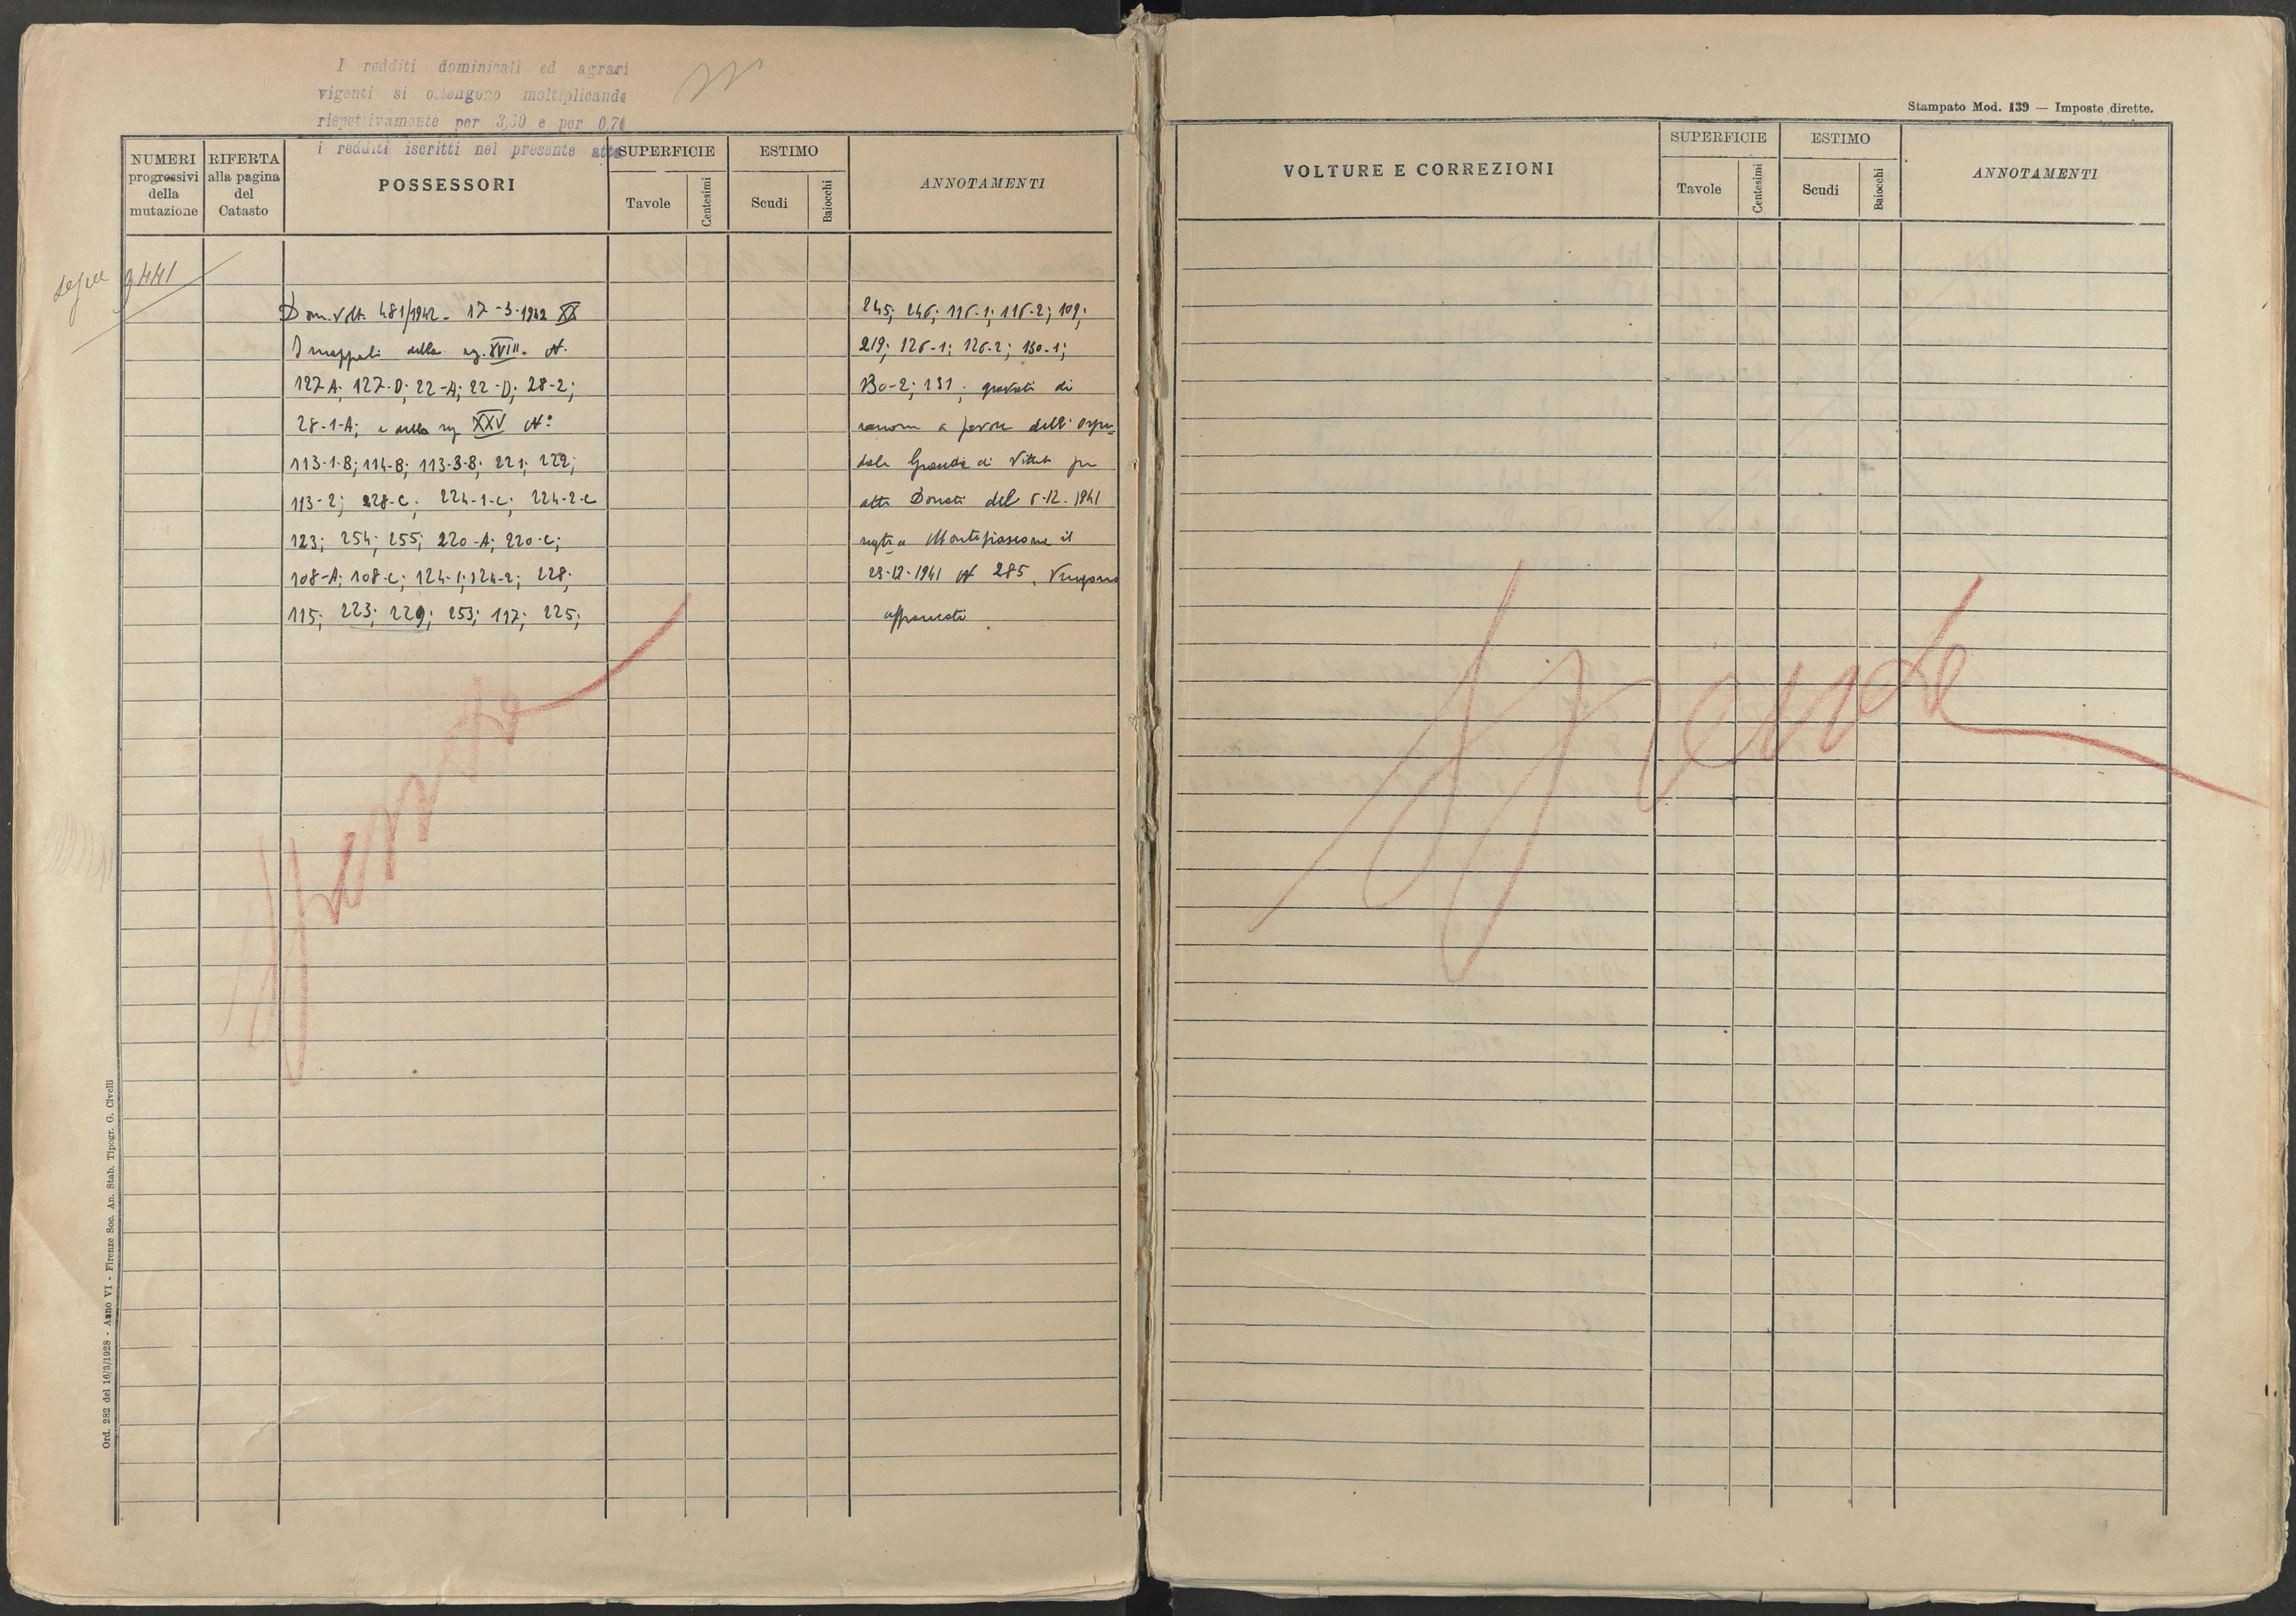 I redditi dominicali ed agrari
vigenti si ottengono moltiplicando
rispettivamente per 3,30 e per 0,70
i redditi iscritti nel presente atto
NUMERI progressivi della mutazione
RIFERTA alla pagina del Catasto
POSSESSORI
SUPERFICIE
Tavole
Centesimi
ESTIMO
Scudi
Baiocchi
ANNOTAMENTI
segue 9441
Dom. Volt. 481/1942 - 17-3-1942 XX
I mappali della XVIII. N.
127-A; 127-D; 22-A; 22-D; 28-2;
28-1-A; e della XXV N°
113-1-B; 114-B; 113-3-B; 221; 222;
113-2; 228-C; 224-1-C; 224-2-C
123; 254; 255; 220-A; 220-C;
108-A; 108-C; 124-1; 124-2; 228;
115; 223; 229; 253; 117; 225;
245; 246; 116-1; 116-2; 109;
219; 126-1; 126-2; 130-1;
130-2; 131; gravati di
a favore dell' Ospe-
dale Grande di Viterbo per
atto Donati del 6-12-1941
a Montefiascone il
23-12-1941 N 285, Vengono
affrancati
Ord. 282 del 16/3/1928 - Anno VI - Firenze Soc. An. Stab. Tipogr. G. Civelli
Stampato Mod. 139 — Imposte dirette.
VOLTURE E CORREZIONI
SUPERFICIE
Tavole
Centesimi
ESTIMO
Scudi
Baiocchi
ANNOTAMENTI